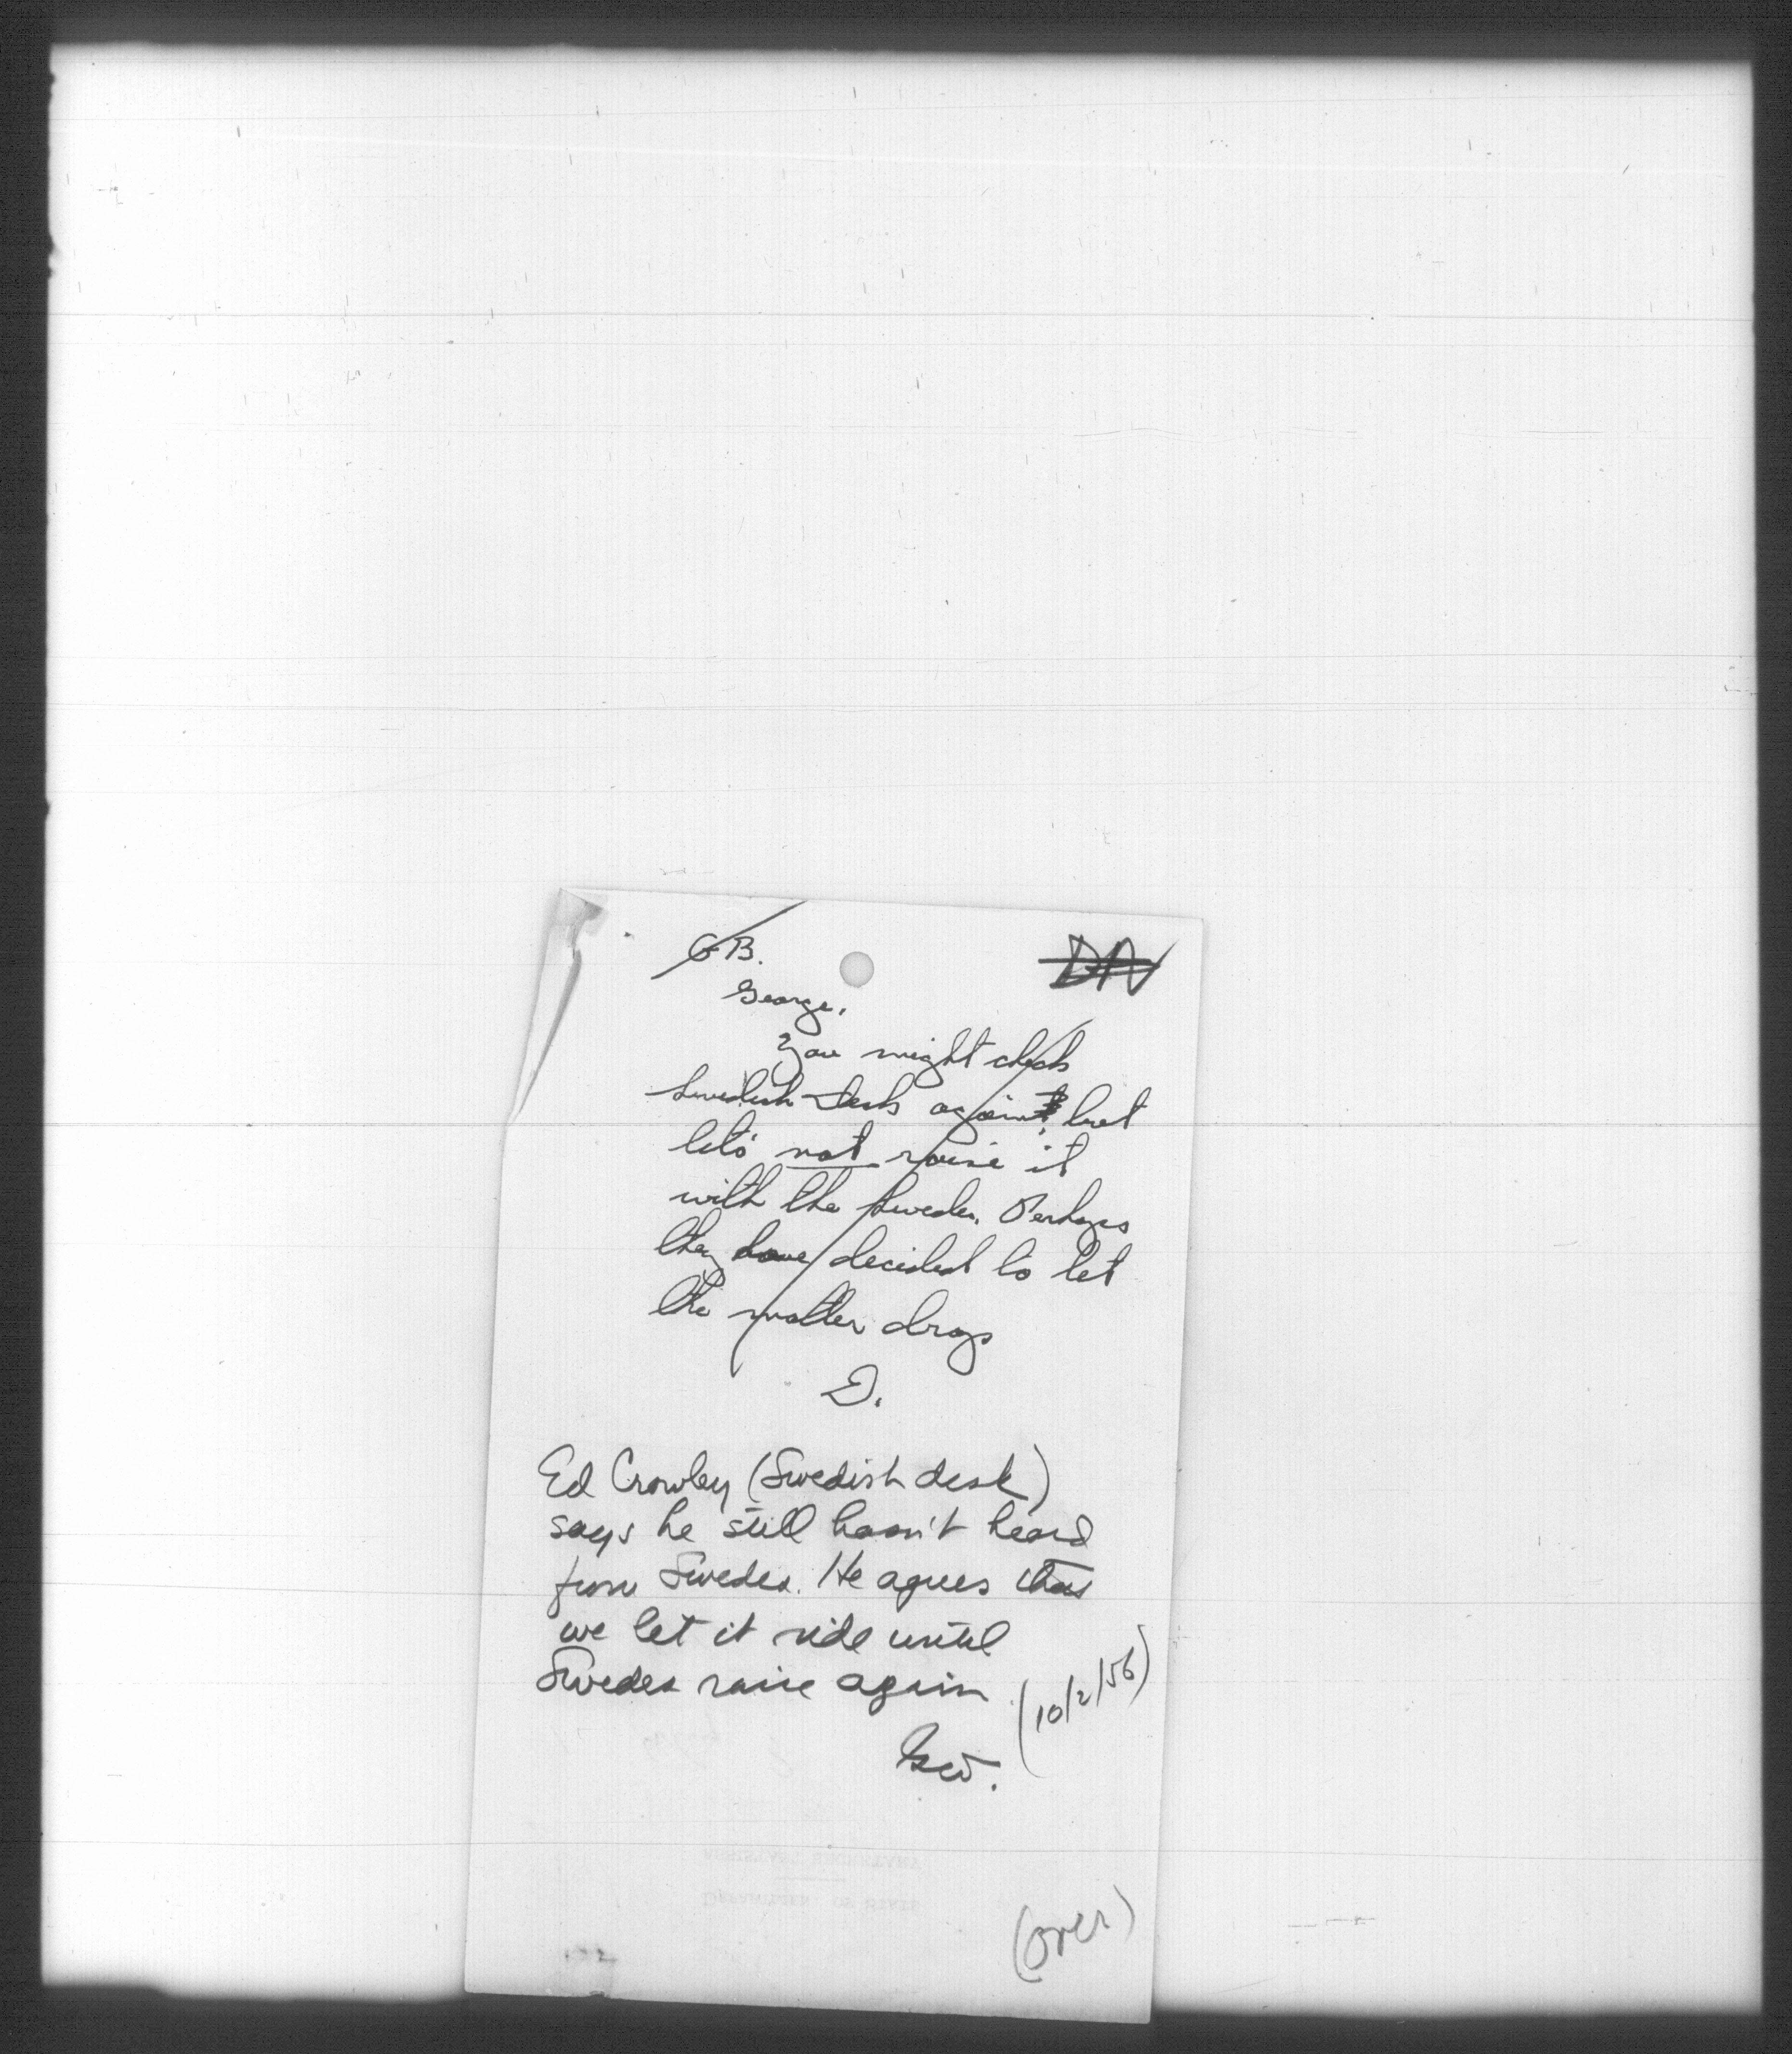 GB. DN
George,
You might check
Swedish Desk again, but
let's not raise it
with the Swedes. Perhaps
they have decided to let
the matter drop
D.
Ed Crowley (Swedish desk)
says he still hasn't heard
from Swedes. He agrees that
we let it ride until
Swedes raise again
(10/2/56)
(over)